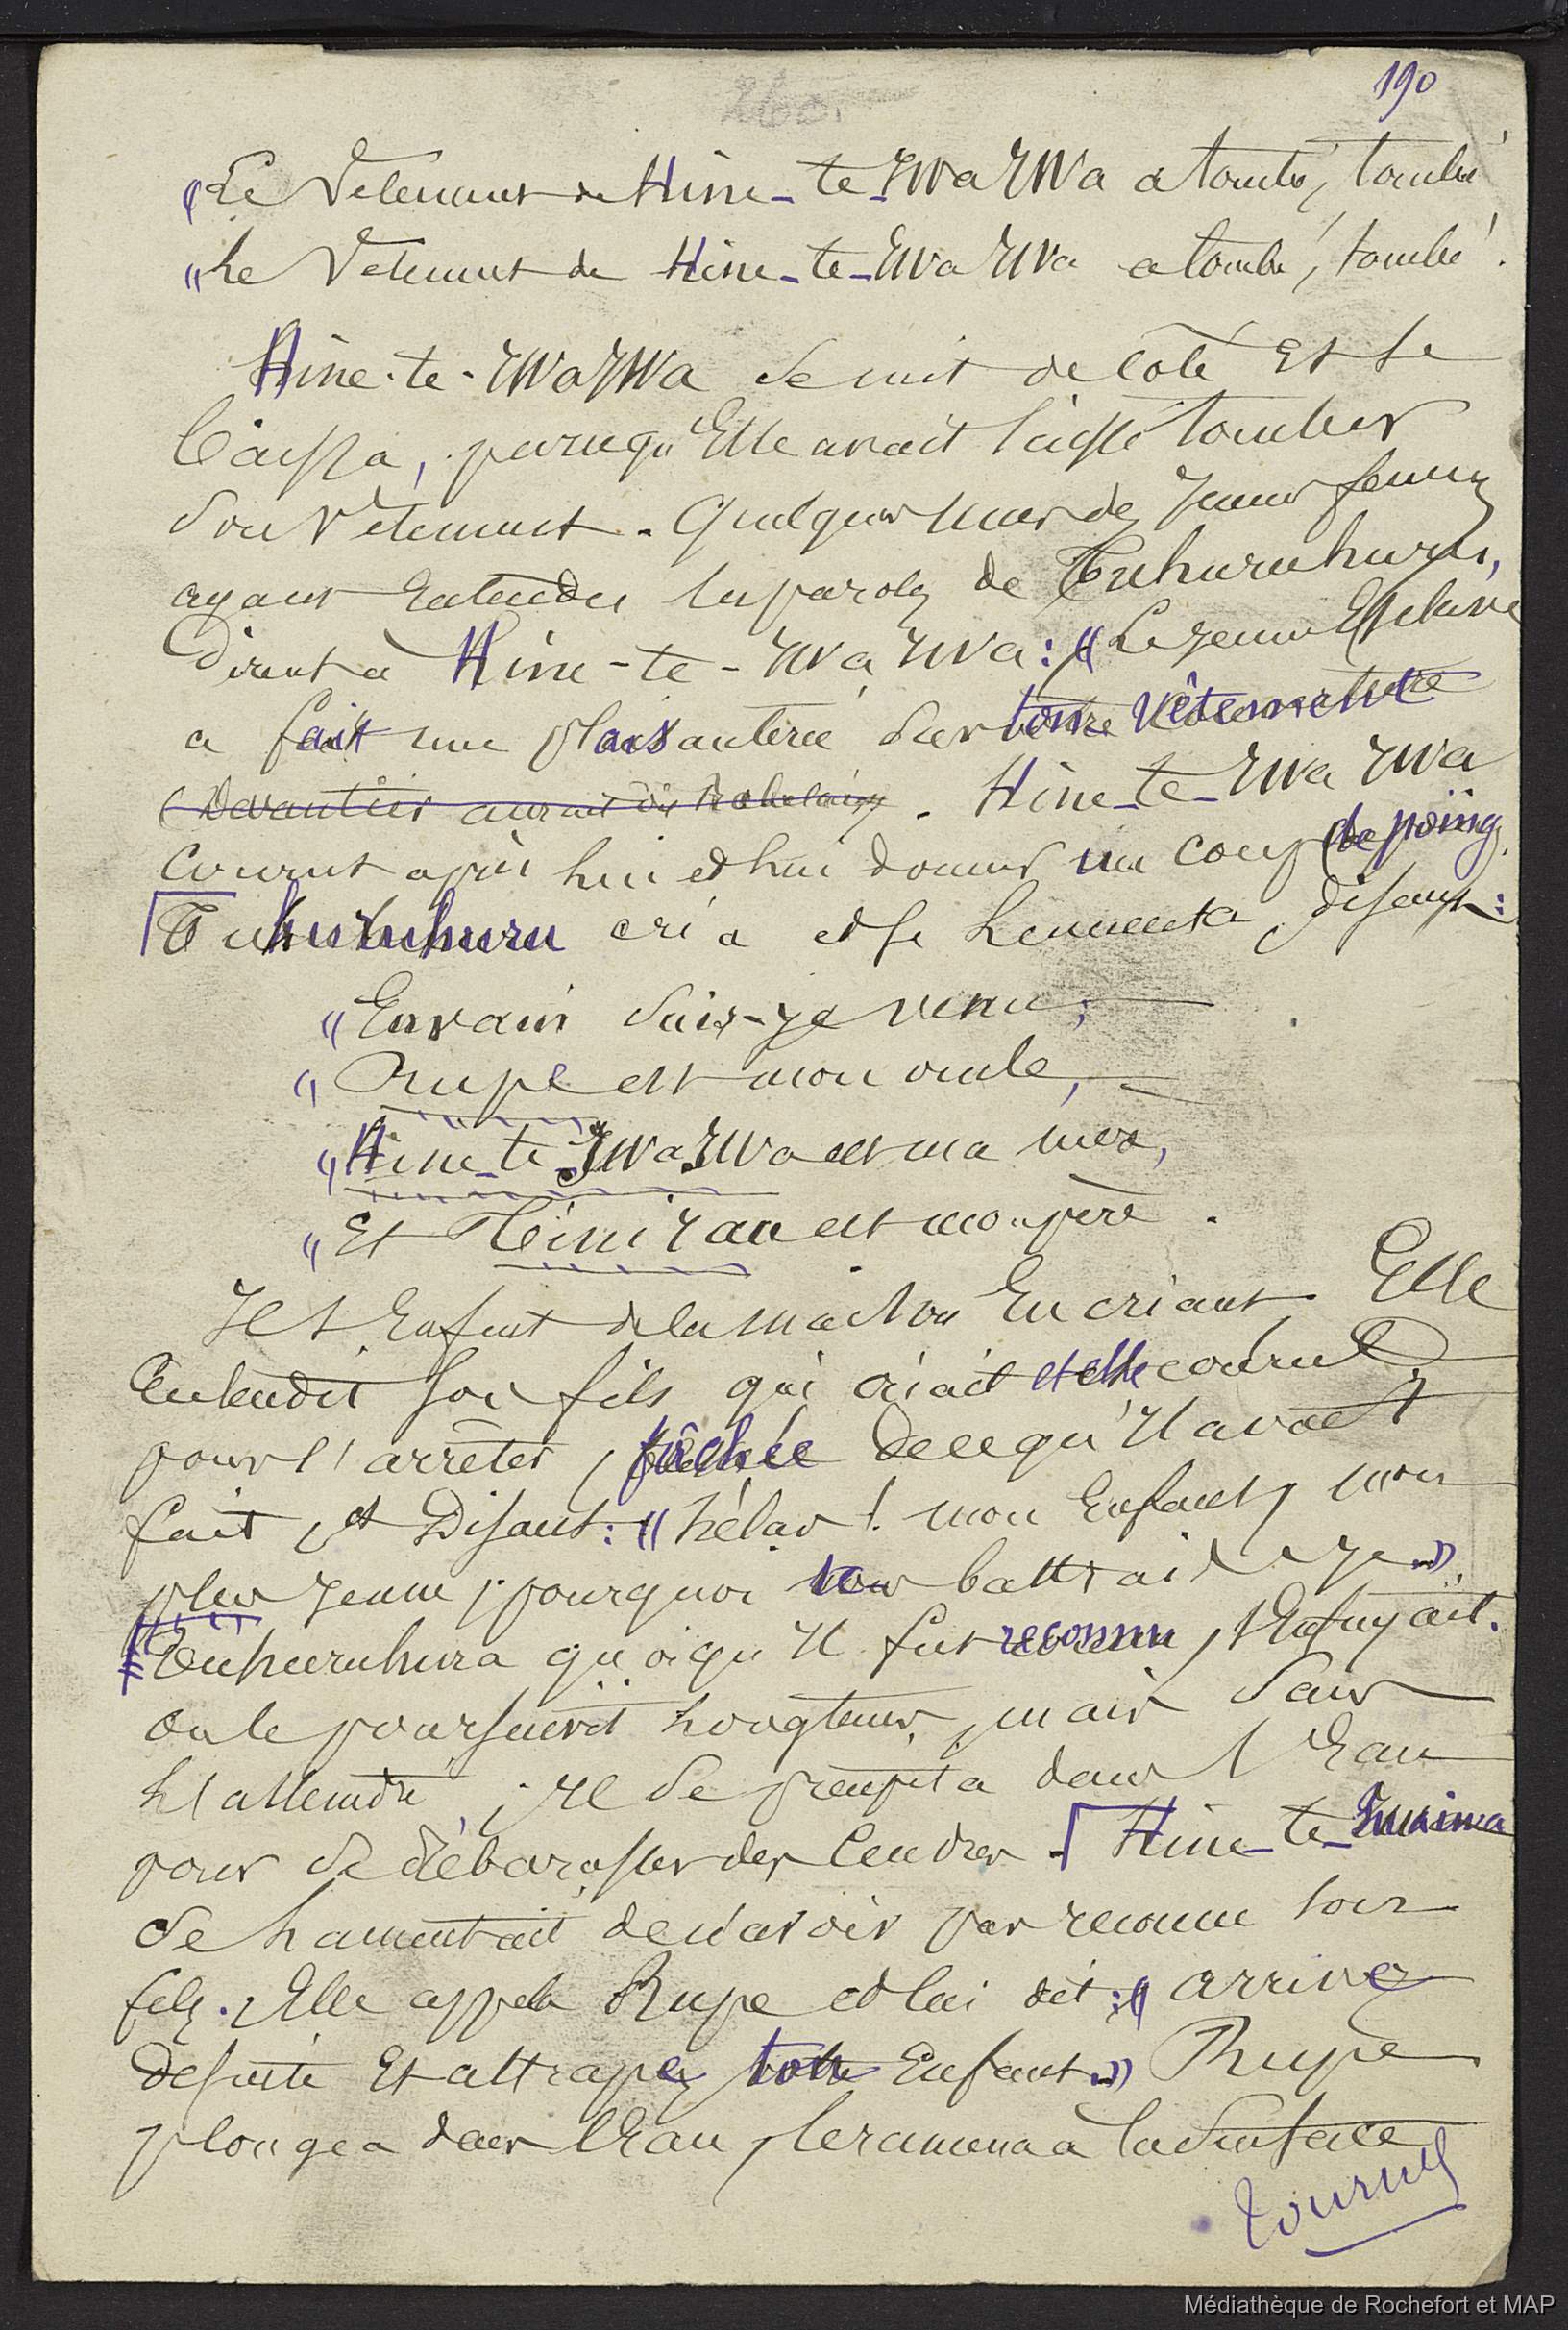 190
260.
"Le Vetement de Hine-te-IWaIWa a tombé, tombé
"Le Vetement de Hine-te-IWaIWa a tombé, tombé.
Hine-te-IWaIWa se mit de côté Et se
baissa, parcequ'Elle avait laissé tomber
son Vetement. Quelques unes des jeunes femmes
ayant Entendu les paroles de Tuhuruhuru,
Dirent à Hine-te-IWaIWa: "Le jeune Esclave
a fait une plaisanterie sur ton vêtement
(Devantier aurait dit Rabelais). Hine-te-IWaIWa
Courut après lui et lui donna un coup de poing.
Tuhuruhuru cria et se lamenta, disant:
"Envain suis-je venu;
"Rupe est mon oncle,
"Hine-te-IWaIWa est ma mère,
"Et Tinirau est mon père.
Il s'Enfuit de la maison En criant. Elle
Entendit son fils qui criait et elle courut
pour l'arrêter, fâchée de ce qu'Il avait
fait, et Disant: "hélas! mon Enfant, mon
plus jeune, pourquoi te battrais-je."
Tuhuruhuru quoiqu'Il fut reconnu, s'Enfuyait.
On le poursuivit longtems, mais sans
l'atteindre; Il se précipita dans l'Eau
pour se débarasser des Cendres. Hine-te-Iwaiwa
se lamentait de n'avoir pas reconnu son
fils. Elle appela Rupe et lui dit: "arrivez
de suite Et attrapez ton Enfant." Rupe
plongea dans l'Eau, le ramena à la Surface
tournez
Médiathèque de Rochefort et MAP